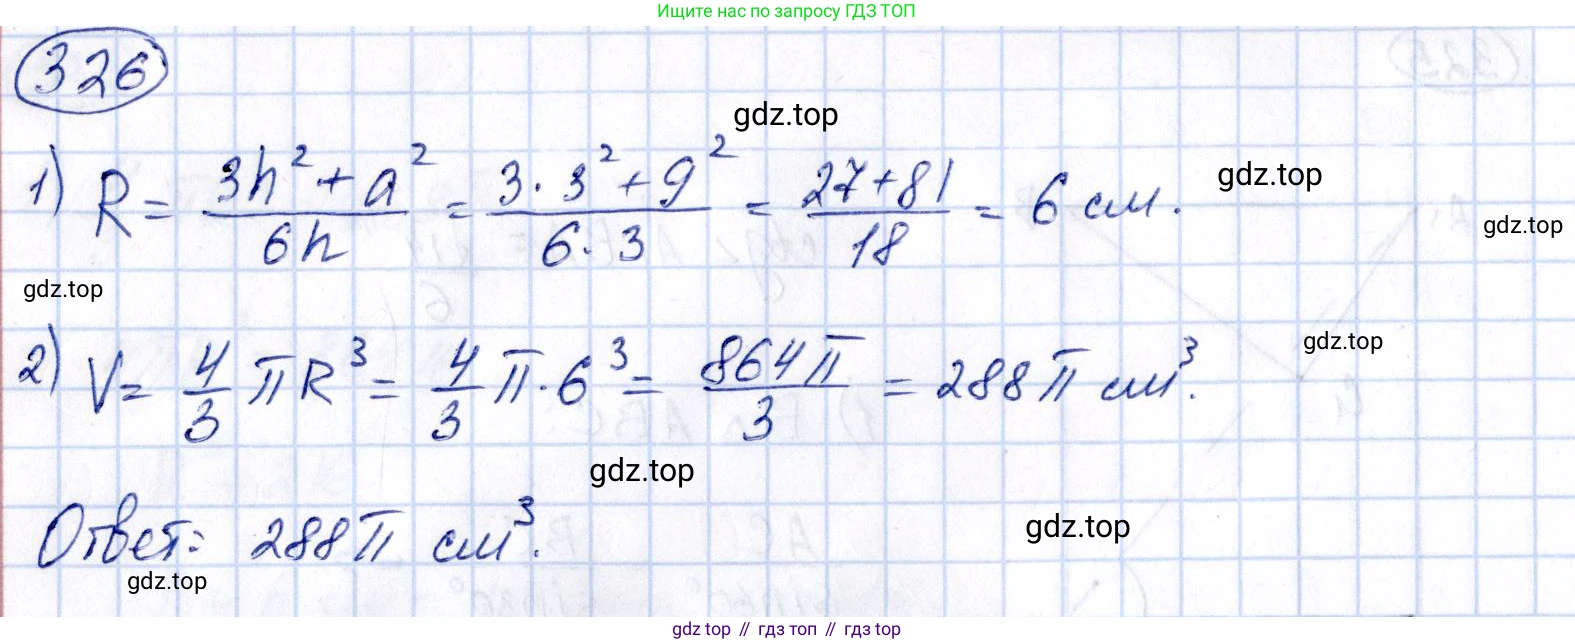 Ищите нас по запросу ГДЗ ТОП
326
gdz.top
1) R = (3h² + a²)/(6h) = (3·3² + 9²)/(6·3) = (27+81)/18 = 6 см.
gdz.top
gdz.top
gdz.top
2) V = 4/3 πR³ = 4/3 π·6³ = 864π/3 = 288π см³.
gdz.top
gdz.top
Ответ: 288π см³.
gdz.top
gdz.top
gdz top // гдз топ // гдз top